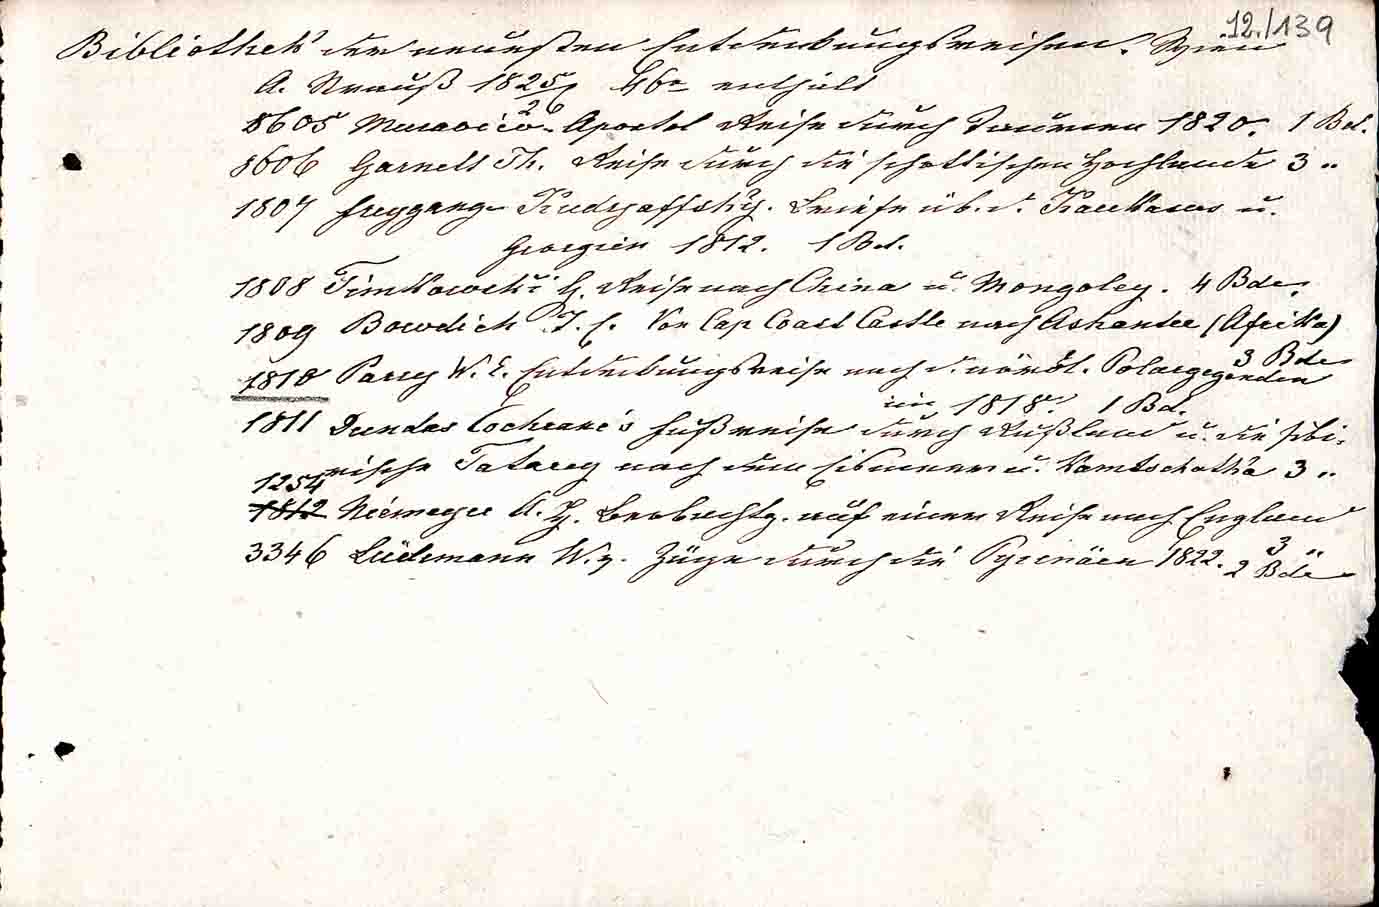 12./139
Bibliothek der neuesten Entdeckungsreisen. Wien
A. Strauß 1825/26 enthält
8605 Murawiew-Apostol Reise durch Taurien 1820. 1 Bd.
8606 Garnett Th. Reise durch die schottischen Hochlande 3 „
1807 Freygang-Kudryaffsky. Briefe üb. d. Kaukasus u.
Georgien 1812. 1 Bd.
1808 Timkowski G. Reise nach China u. Mongoley. 4 Bde.
1809 Bowdich T. E. Von Cap Coast Castle nach Ashantee (Afrika)
3 Bde
1810 Parry W. E. Entdeckungsreise nach d. nördl. Polargegenden
im 1818. 1 Bd.
1811 Dundas Cochrane's Fußreise durch Rußland u. die sibi-
rische Tatarey nach dem Eismeer u. Kamtschatka 3 „
1254
1812 Niemeyer A. H. Beobachtg. auf einer Reise nach England
3 „
3346 Lüdemann W. v. Züge durch die Pyrenäen 1822. 2 Bde